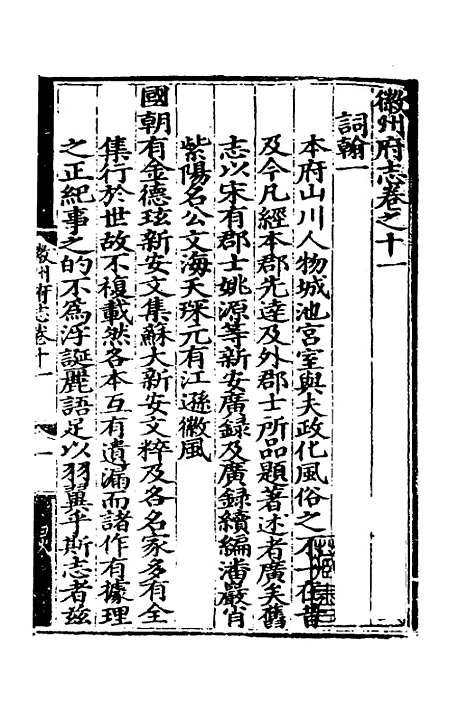 徽州府志卷之十一
詞翰一
本府山川人物城池宮室與夫政化風俗之不一在昔
及今凡經本郡先達及外郡士所品題著述者廣矣舊
志以宋有郡士姚源等新安廣録及廣録續編潘嚴肖
紫陽名公文海天琛元有江遜徽風
國朝有金德玹新安文集蘇大新安文粹及各名家多有全
集行於世故不複載然各本互有遺漏而諸作有據理
之正紀事之的不為浮誕麗語足以羽翼乎斯志者玆
徽州府志卷十一
一